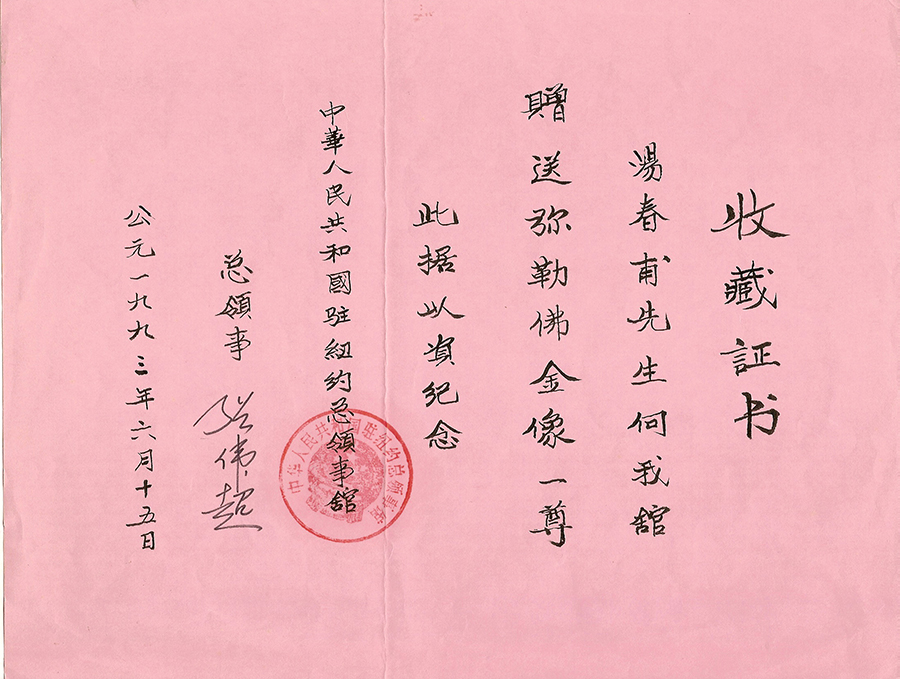 收藏証书
湯春甫先生何我舘
贈送弥勒佛金像一尊
此据以資纪念
中華人民共和國駐紐约总領事舘
总領事 张伟超
公元一九九三年六月十五日
中华人民共和国驻纽约总领事馆